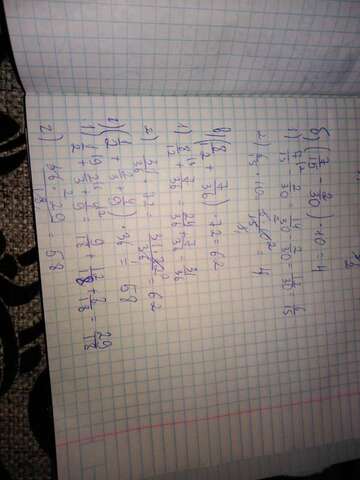 б) (7/15 - 2/30) · 10 = 4
1) 7/15 - 2/30 = 14/30 - 2/30 = 12/30 = 6/15
2) 6/15 · 10 = 4
в) (8/12 + 7/36) · 72 = 62
1) 8/12 + 7/36 = 24/36 + 7/36 = 31/36
2) 31/36 · 72 = 31 · 72/36 = 62
г) (1/2 + 2/3 + 4/9) · 36 = 58
1) 1/2 + 2/3 + 4/9 = 9/18 + 12/18 + 8/18 = 29/18
2) 36 · 29/18 = 58